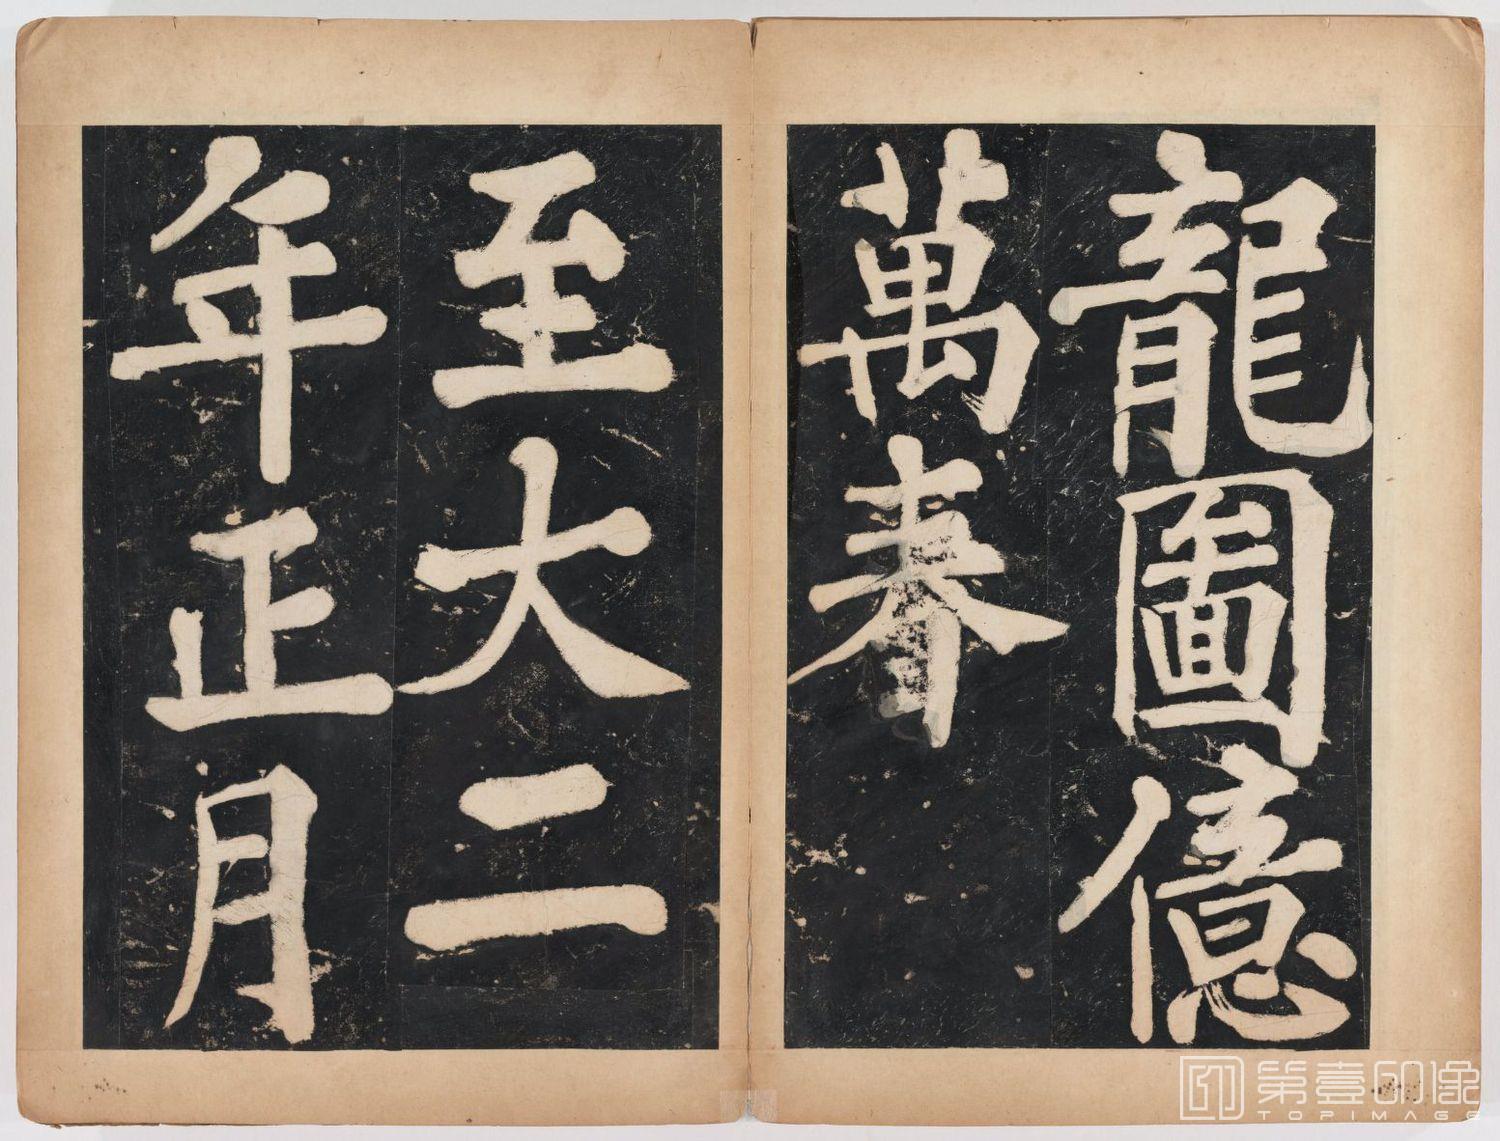 龍圖億
萬春
至大二
年正月
第壹印像
TOPIMAGE